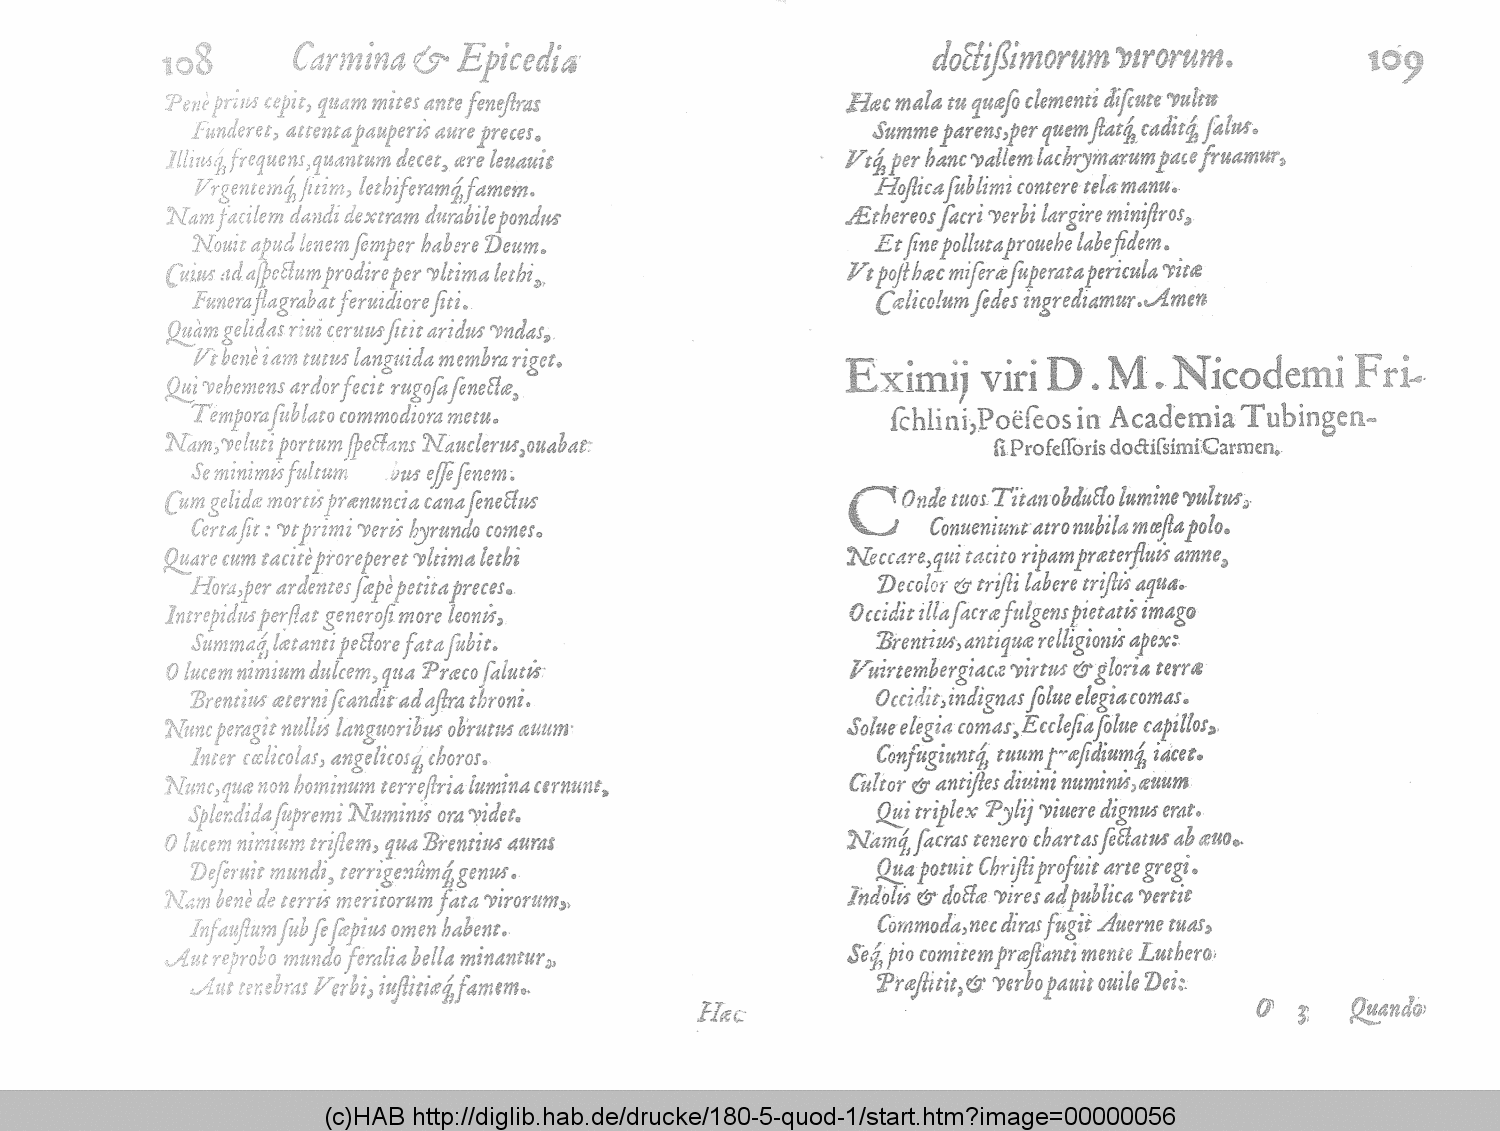 108 Carmina & Epicedia
Penè prius cepit, quam mites ante fenestras
Funderet, attenta pauperis aure preces.
Illiusq́; frequens, quantum decet, ære leuauit
Vrgentemq́; sitim, lethiferamq́; famem.
Nam facilem dandi dextram durabile pondus
Nouit apud lenem semper habere Deum.
Cuius ad aspectum prodire per vltima lethi,
Funera flagrabat feruidiore siti.
Quàm gelidas riui ceruus sitit aridus vndas,
Vt benè iam tutus languida membra riget.
Qui vehemens ardor fecit rugosa senectæ,
Tempora sublato commodiora metu.
Nam, veluti portum spectans Nauclerus, ouabat:
Se minimis fultum esse senem.
Cum gelidæ mortis prænuncia cana senectus
Certa sit: vt primi veris hyrundo comes.
Quare cum tacitè proreperet vltima lethi
Hora, per ardentes sæpè petita preces.
Intrepidus perstat generosi more leonis,
Summaq́; lætanti pectore fata subit.
O lucem nimium dulcem, qua Præco salutis
Brentius æterni scandit ad astra throni.
Nunc peragit nullis languoribus obrutus æuum
Inter cælicolas, angelicosq́; choros.
Nunc, quæ non hominum terrestria lumina cernunt,
Splendida supremi Numinis ora videt.
O lucem nimium tristem, qua Brentius auras
Deseruit mundi, terrigenûmq́; genus.
Nam benè de terris meritorum fata virorum,
Infaustum sub se sæpius omen habent.
Aut reprobo mundo feralia bella minantur,
Aut tenebras Verbi, iustitiæq́; famem.
Hæc
doctißimorum virorum. 109
Hæc mala tu quæso clementi discute vultu
Summe parens, per quem statq́; caditq́; salus.
Vtq́; per hanc vallem lachrymarum pace fruamur,
Hostica sublimi contere tela manu.
Æthereos sacri verbi largire ministros,
Et sine polluta prouehe labe fidem.
Vt post hæc miseræ superata pericula vitæ
Cælicolum sedes ingrediamur. Amen
Eximij viri D. M. Nicodemi Fri-
schlini, Poëseos in Academia Tubingen-
si Professoris doctissimi Carmen.
COnde tuos Titan obducto lumine vultus,
Conueniunt atro nubila mœsta polo.
Neccare, qui tacito ripam præterfluis amne,
Decolor & tristi labere tristis aqua.
Occidit illa sacræ fulgens pietatis imago
Brentius, antiquæ relligionis apex:
Vuirtembergiacæ virtus & gloria terræ
Occidit, indignas solue elegia comas.
Solue elegia comas, Ecclesia solue capillos,
Confugiuntq́; tuum præsidiumq́; iacet.
Cultor & antistes diuini numinis, æuum
Qui triplex Pylij viuere dignus erat.
Namq́; sacras tenero chartas sectatus ab æuo.
Qua potuit Christi profuit arte gregi.
Indolis & doctæ vires ad publica vertit
Commoda, nec diras fugit Auerne tuas,
Seq́; pio comitem præstanti mente Luthero
Præstitit, & verbo pauit ouile Dei:
O 3 Quando
(c)HAB http://diglib.hab.de/drucke/180-5-quod-1/start.htm?image=00000056